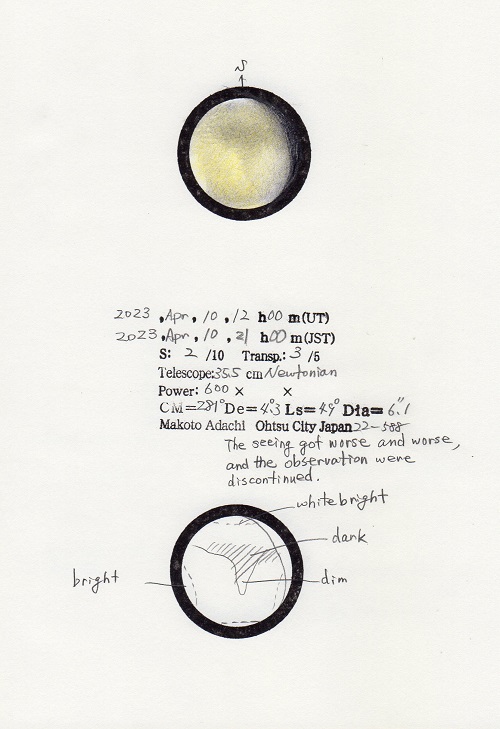 S
2023 , Apr , 10 , 12 h 00 m (UT)
2023 , Apr , 10 , 21 h 00 m (JST)
S: 2 /10 Transp.: 3 /5
Telescope: 35.5 cm Newtonian
Power: 600 × ×
CM=281° De= 4.°3 Ls= 49° Dia= 6."1
Makoto Adachi Ohtsu City Japan 22-588
The seeing got worse and worse,
and the observation were
discontinued.
white bright
dark
bright
dim